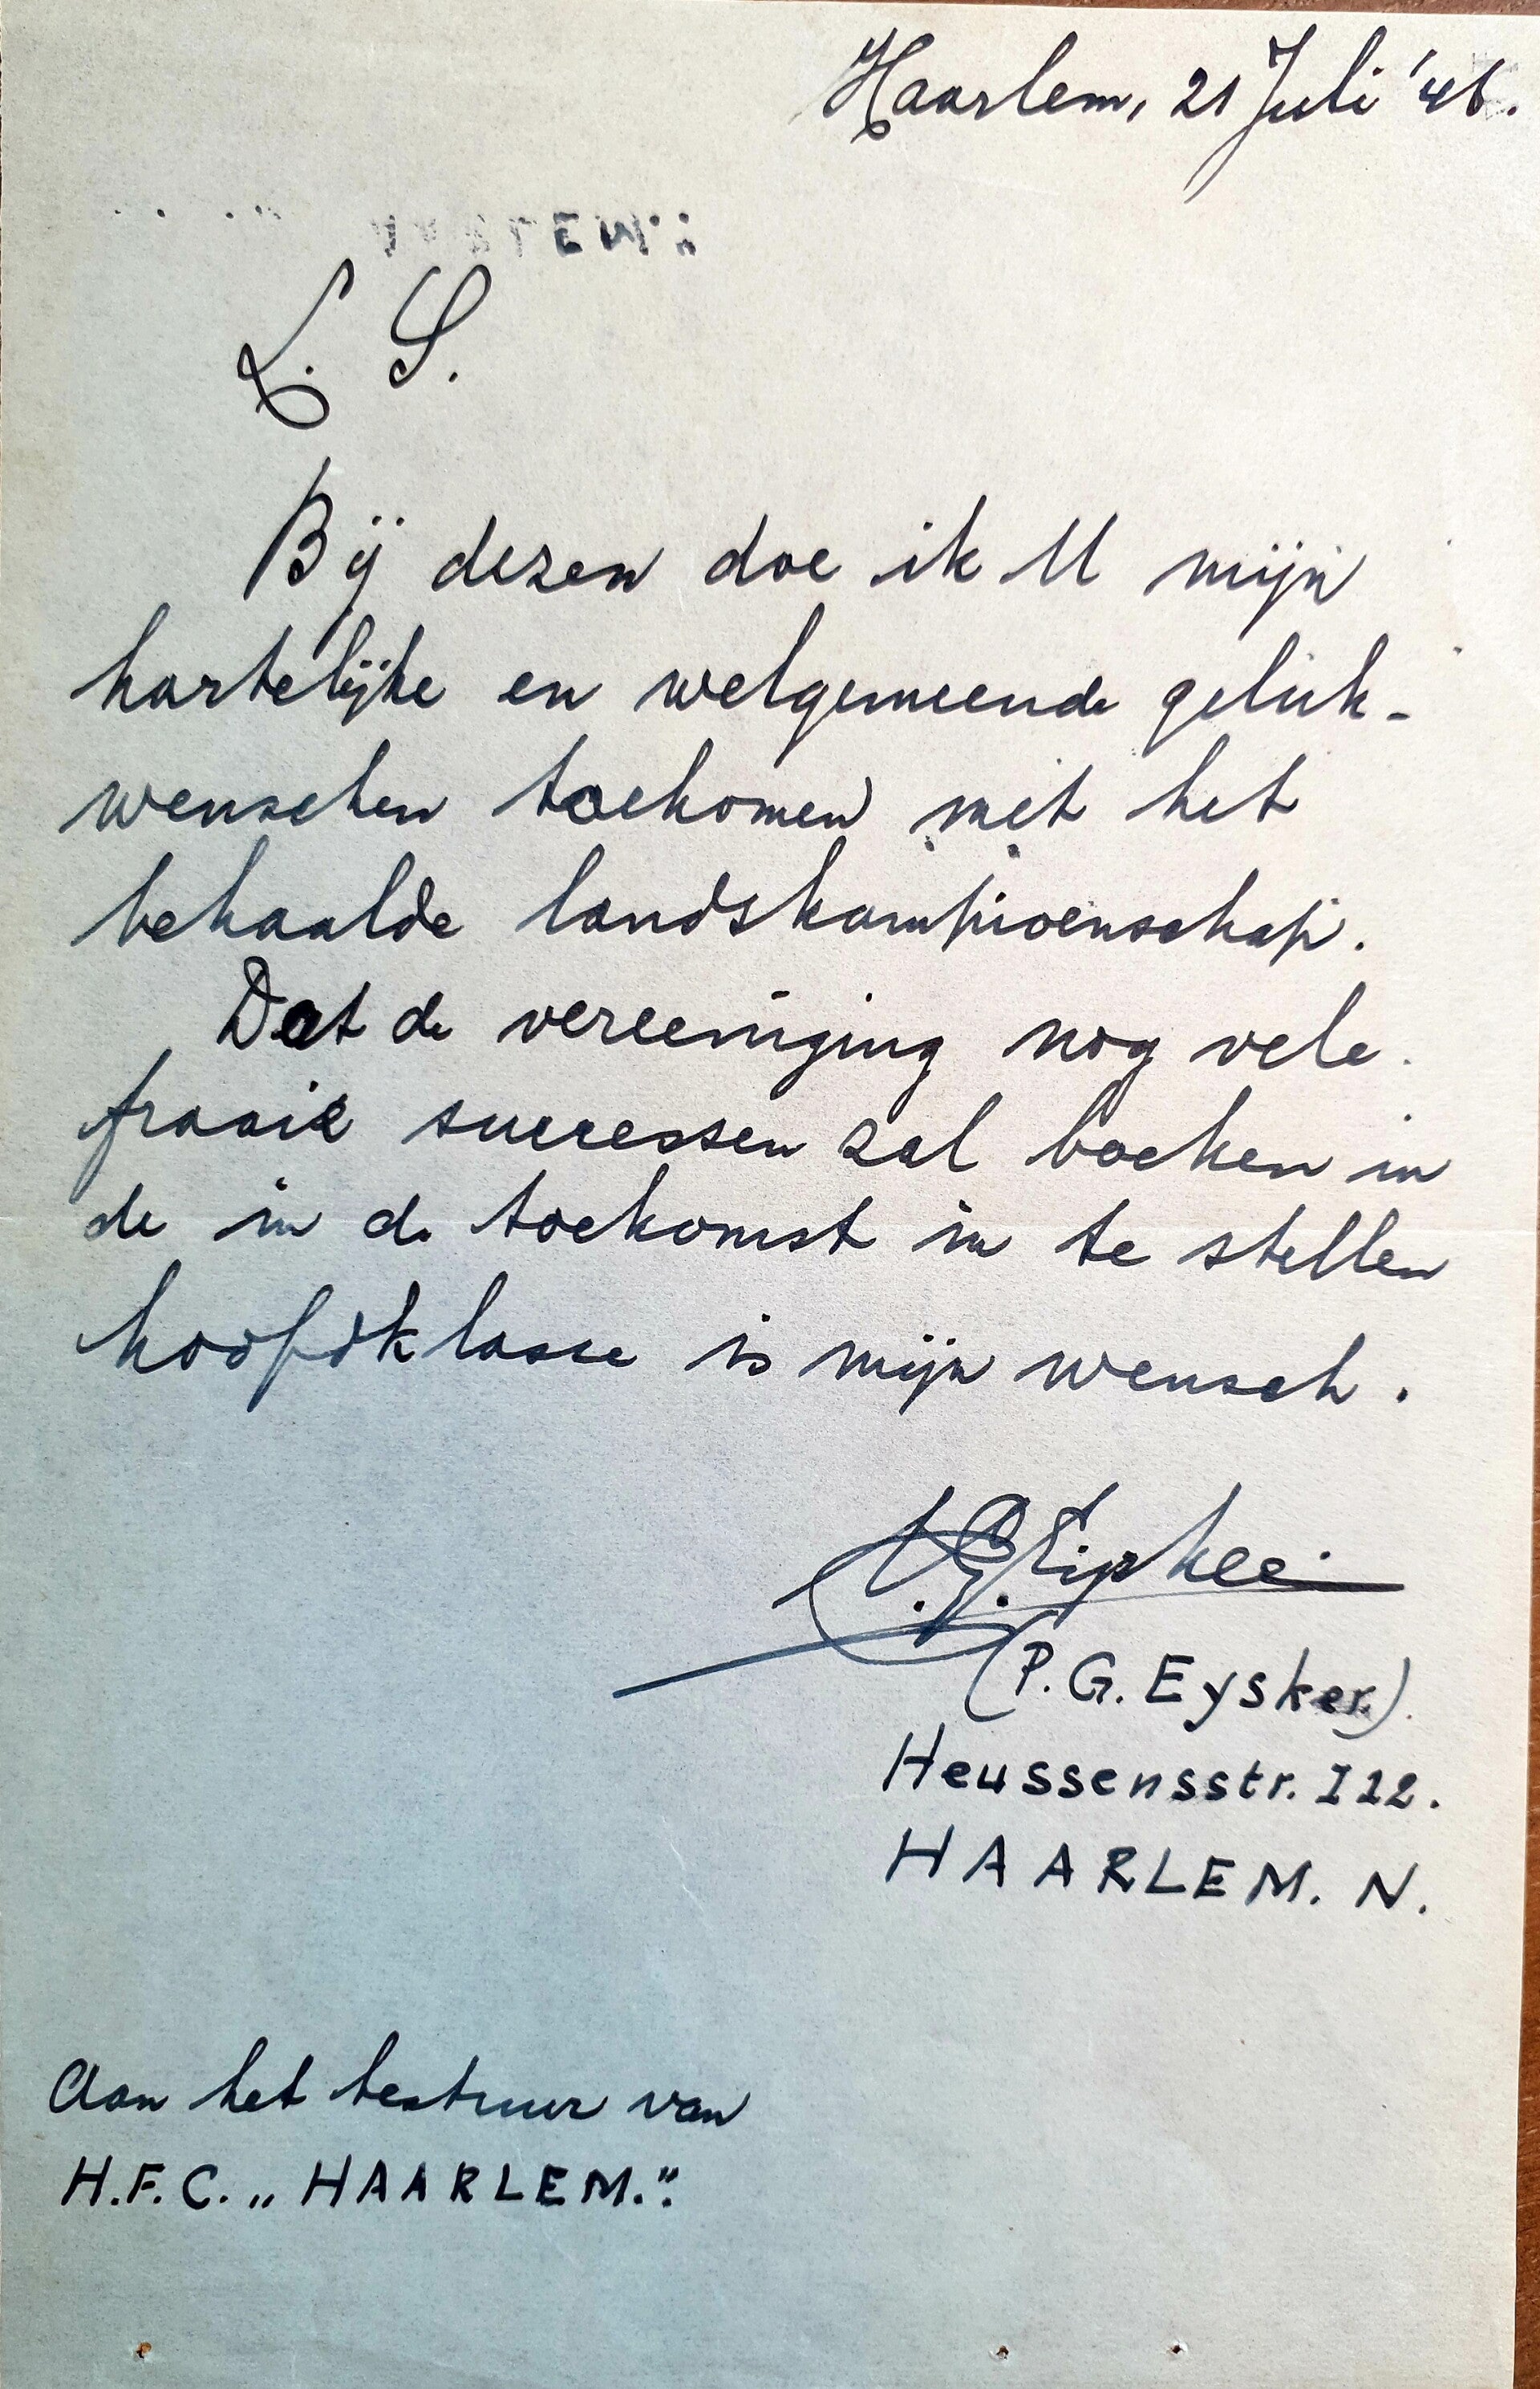 Haarlem, 21 Juli '46.
L. S.
Bij dezen doe ik U mijn
hartelijke en welgemeende geluk-
wenschen toekomen met het
behaalde landskampioenschap.
Dat de vereeniging nog vele
fraaie successen zal boeken in
de in de toekomst in te stellen
hoofdklasse is mijn wensch.
(P. G. Eysker).
Heussensstr. 122.
HAARLEM. N.
Aan het bestuur van
H.F.C. „HAARLEM.".